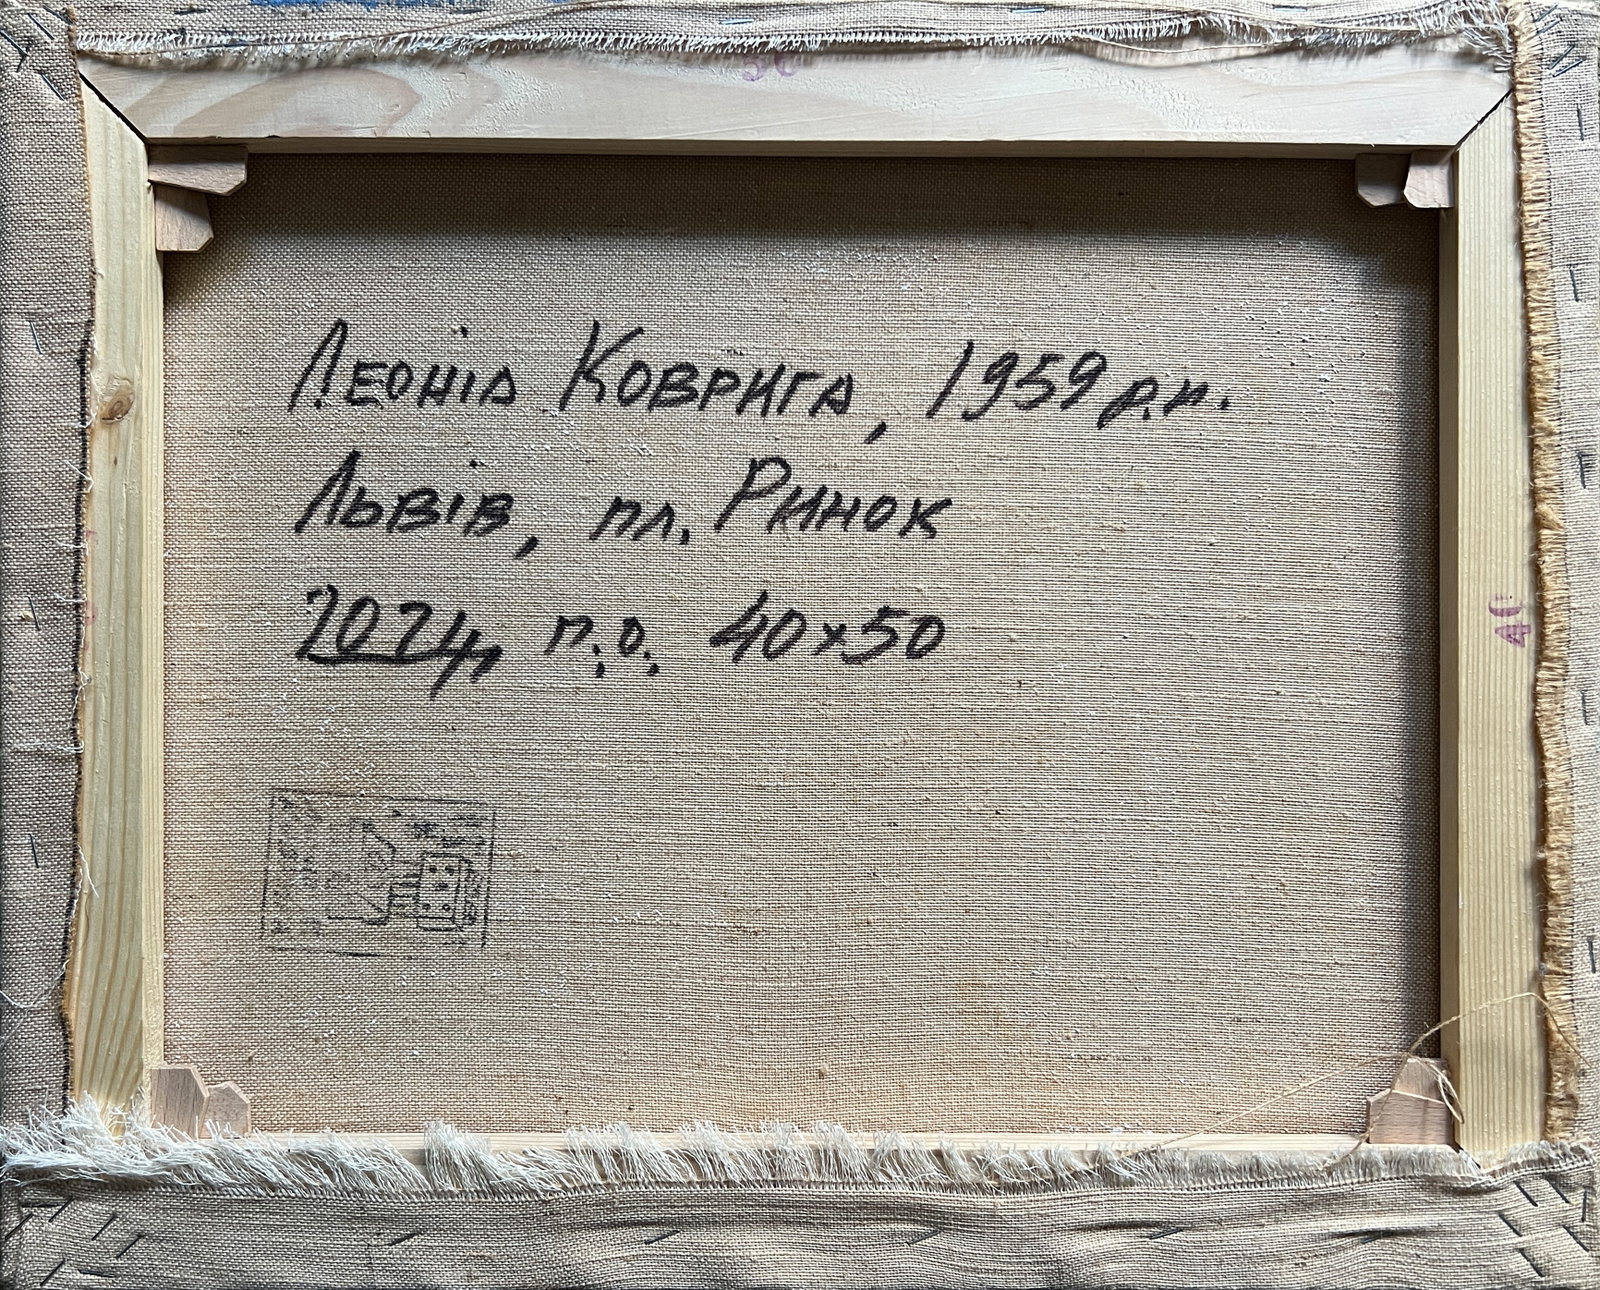 50
Леонід Коврига, 1959 р.н.
Львів, пл. Ринок
2024, п.о. 40х50
40